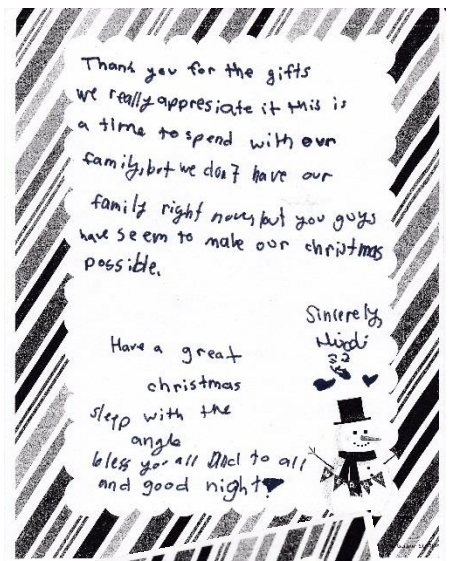 Thank you for the gifts
we really appresiate it this is
a time to spend with our
family, but we don't have our
family right now, but you guys
have seem to make our christmas
possible.
Sincerely,
Have a great
christmas
sleep with the
angle
bless you all And to all
and good night